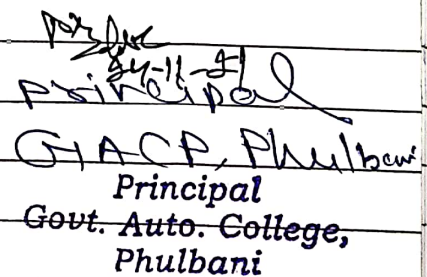 Principal
GACP, Phulbani
Principal
Govt. Auto. College,
Phulbani